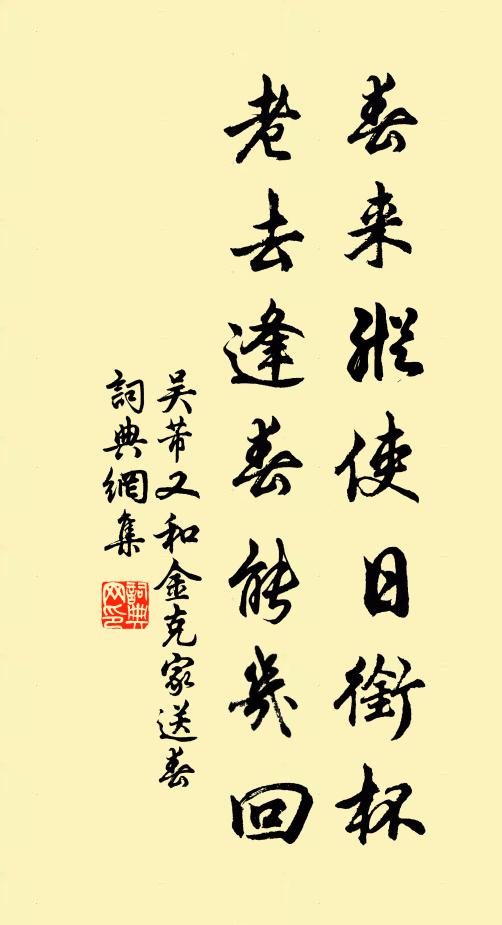 春来縱使日銜杯
老去逢春能幾回
吴芾又和金克家送春
詞典網集
詞典網印